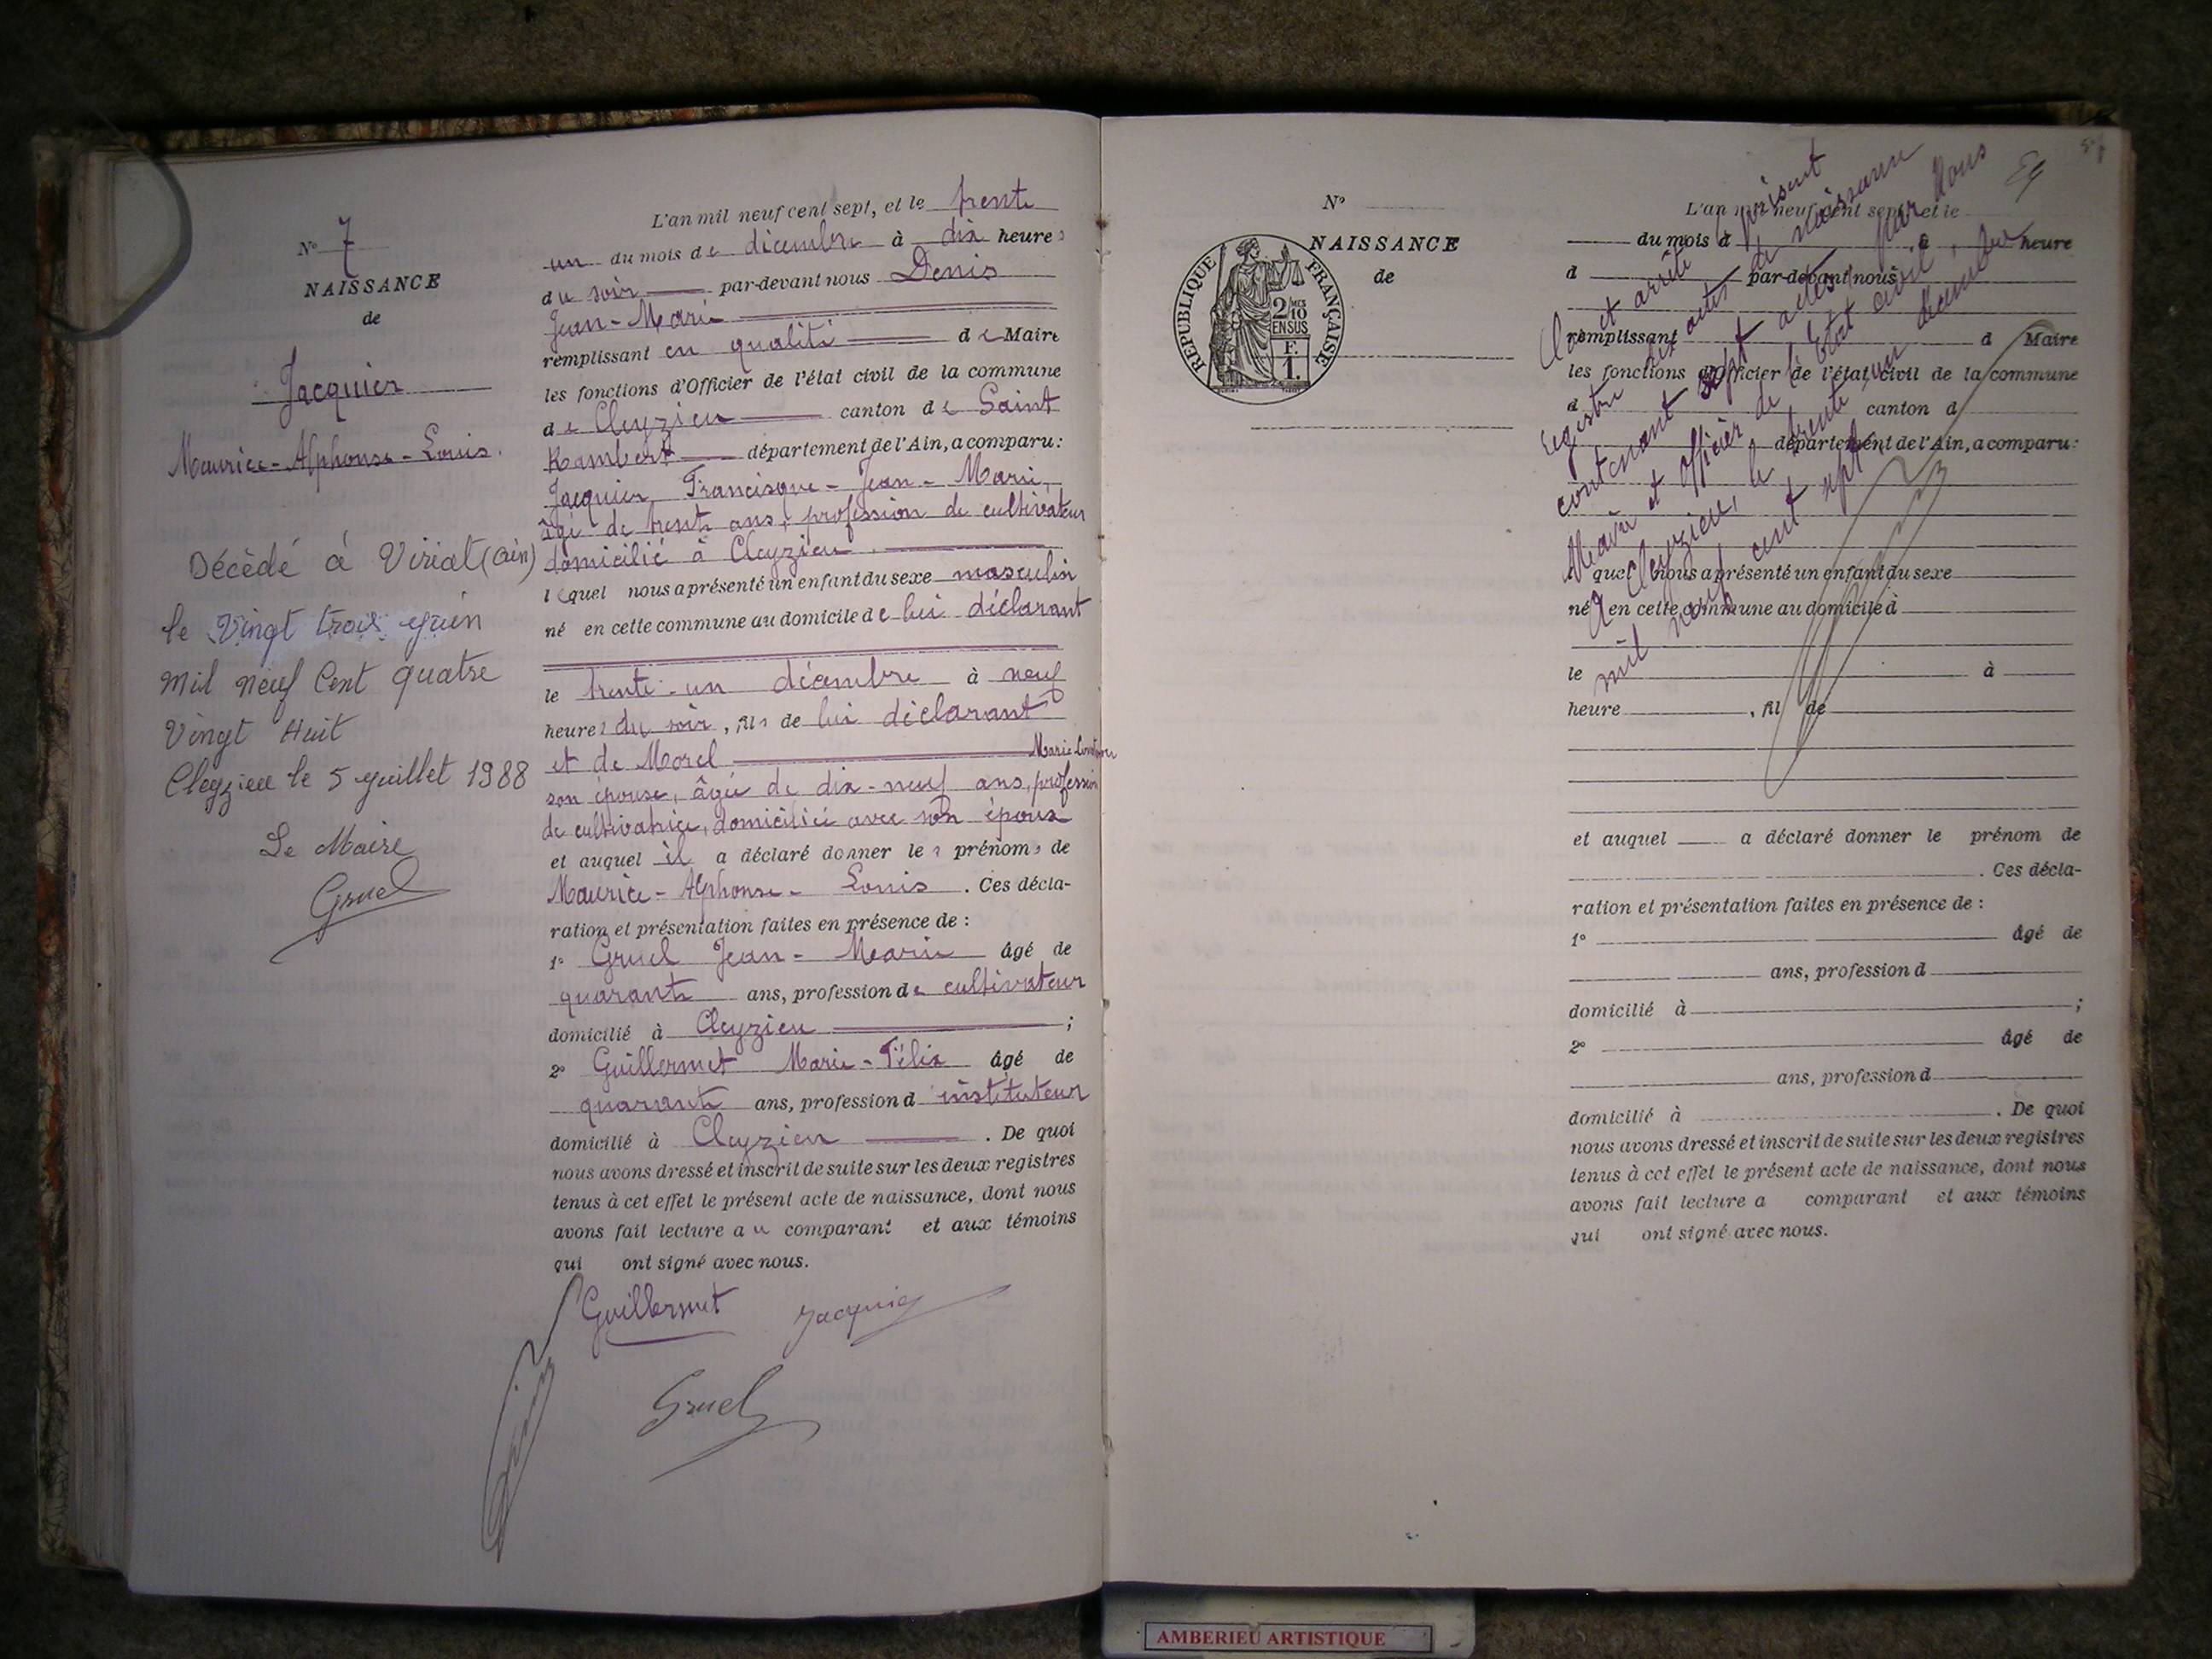 N° 7
NAISSANCE
de
Jacquier
Maurice-Alphonse-Louis.
Décèdé à Viriat (Ain)
le Vingt trois juin
Mil Neuf Cent quatre
Vingt Huit
Cleyzieu le 5 juillet 1988
Le Maire
Gruel
L'an mil neuf cent sept, et le trente
un du mois de décembre à dix heures
du soir par-devant nous Denis
Jean-Marie
remplissant en qualité de Maire
les fonctions d'Officier de l'état civil de la commune
de Cleyzieu canton de Saint
Rambert département de l'Ain, a comparu :
Jacquier Francisque-Jean-Marie,
âgé de trente ans, profession de cultivateur
domicilié à Cleyzieu
lequel nous a présenté un enfant du sexe masculin
né en cette commune au domicile de lui déclarant
le trente-un décembre à neuf
heures du soir, fils de lui déclarant
et de Morel Marie
son épouse, âgée de dix-neuf ans, profession
de cultivatrice, domiciliée avec son époux
et auquel il a déclaré donner les prénoms de
Maurice-Alphonse-Louis. Ces décla-
ration et présentation faites en présence de :
1° Gruel Jean-Marie âgé de
quarante ans, profession de cultivateur
domicilié à Cleyzieu ;
2° Guillermet Marie-Félix âgé de
quarante ans, profession d'instituteur
domicilié à Cleyzieu. De quoi
nous avons dressé et inscrit de suite sur les deux registres
tenus à cet effet le présent acte de naissance, dont nous
avons fait lecture au comparant et aux témoins
qui ont signé avec nous.
Guillermet Jacquier
Gruel
N°
NAISSANCE
de
RÉPUBLIQUE FRANÇAISE
2/MES
10
EN SUS
F.
1.
L'an mil neuf cent sept, et le
du mois d à heure
d par-devant nous
remplissant d Maire
les fonctions d'Officier de l'état civil de la commune
d canton d
département de l'Ain, a comparu :
quel nous a présenté un enfant du sexe
né en cette commune au domicile d
le à
heure , fil de
et auquel a déclaré donner le prénom de
. Ces décla-
ration et présentation faites en présence de :
1° âgé de
ans, profession d
domicilié à ;
2° âgé de
ans, profession d
domicilié à . De quoi
nous avons dressé et inscrit de suite sur les deux registres
tenus à cet effet le présent acte de naissance, dont nous
avons fait lecture a comparant et aux témoins
qui ont signé avec nous.
Clos et arrêté le présent
registre des actes de naissance
contenant sept actes, par Nous
Maire et Officier de l'Etat civil,
A Cleyzieu, le trente un décembre
mil neuf cent sept
AMBERIEU ARTISTIQUE